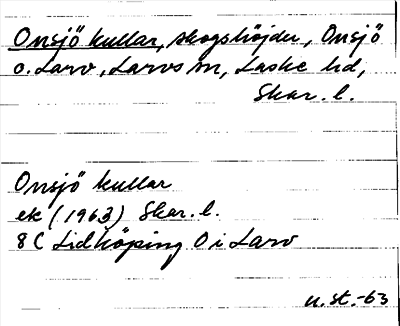 Onsjö kullar, skogshöjder, Onsjö
o. Larv, Larvs sn, Laske hd,
Skar. l.
Onsjö kullar
ek (1963) Skar. l.
8C Lidköping O i Larv
u.st.-63